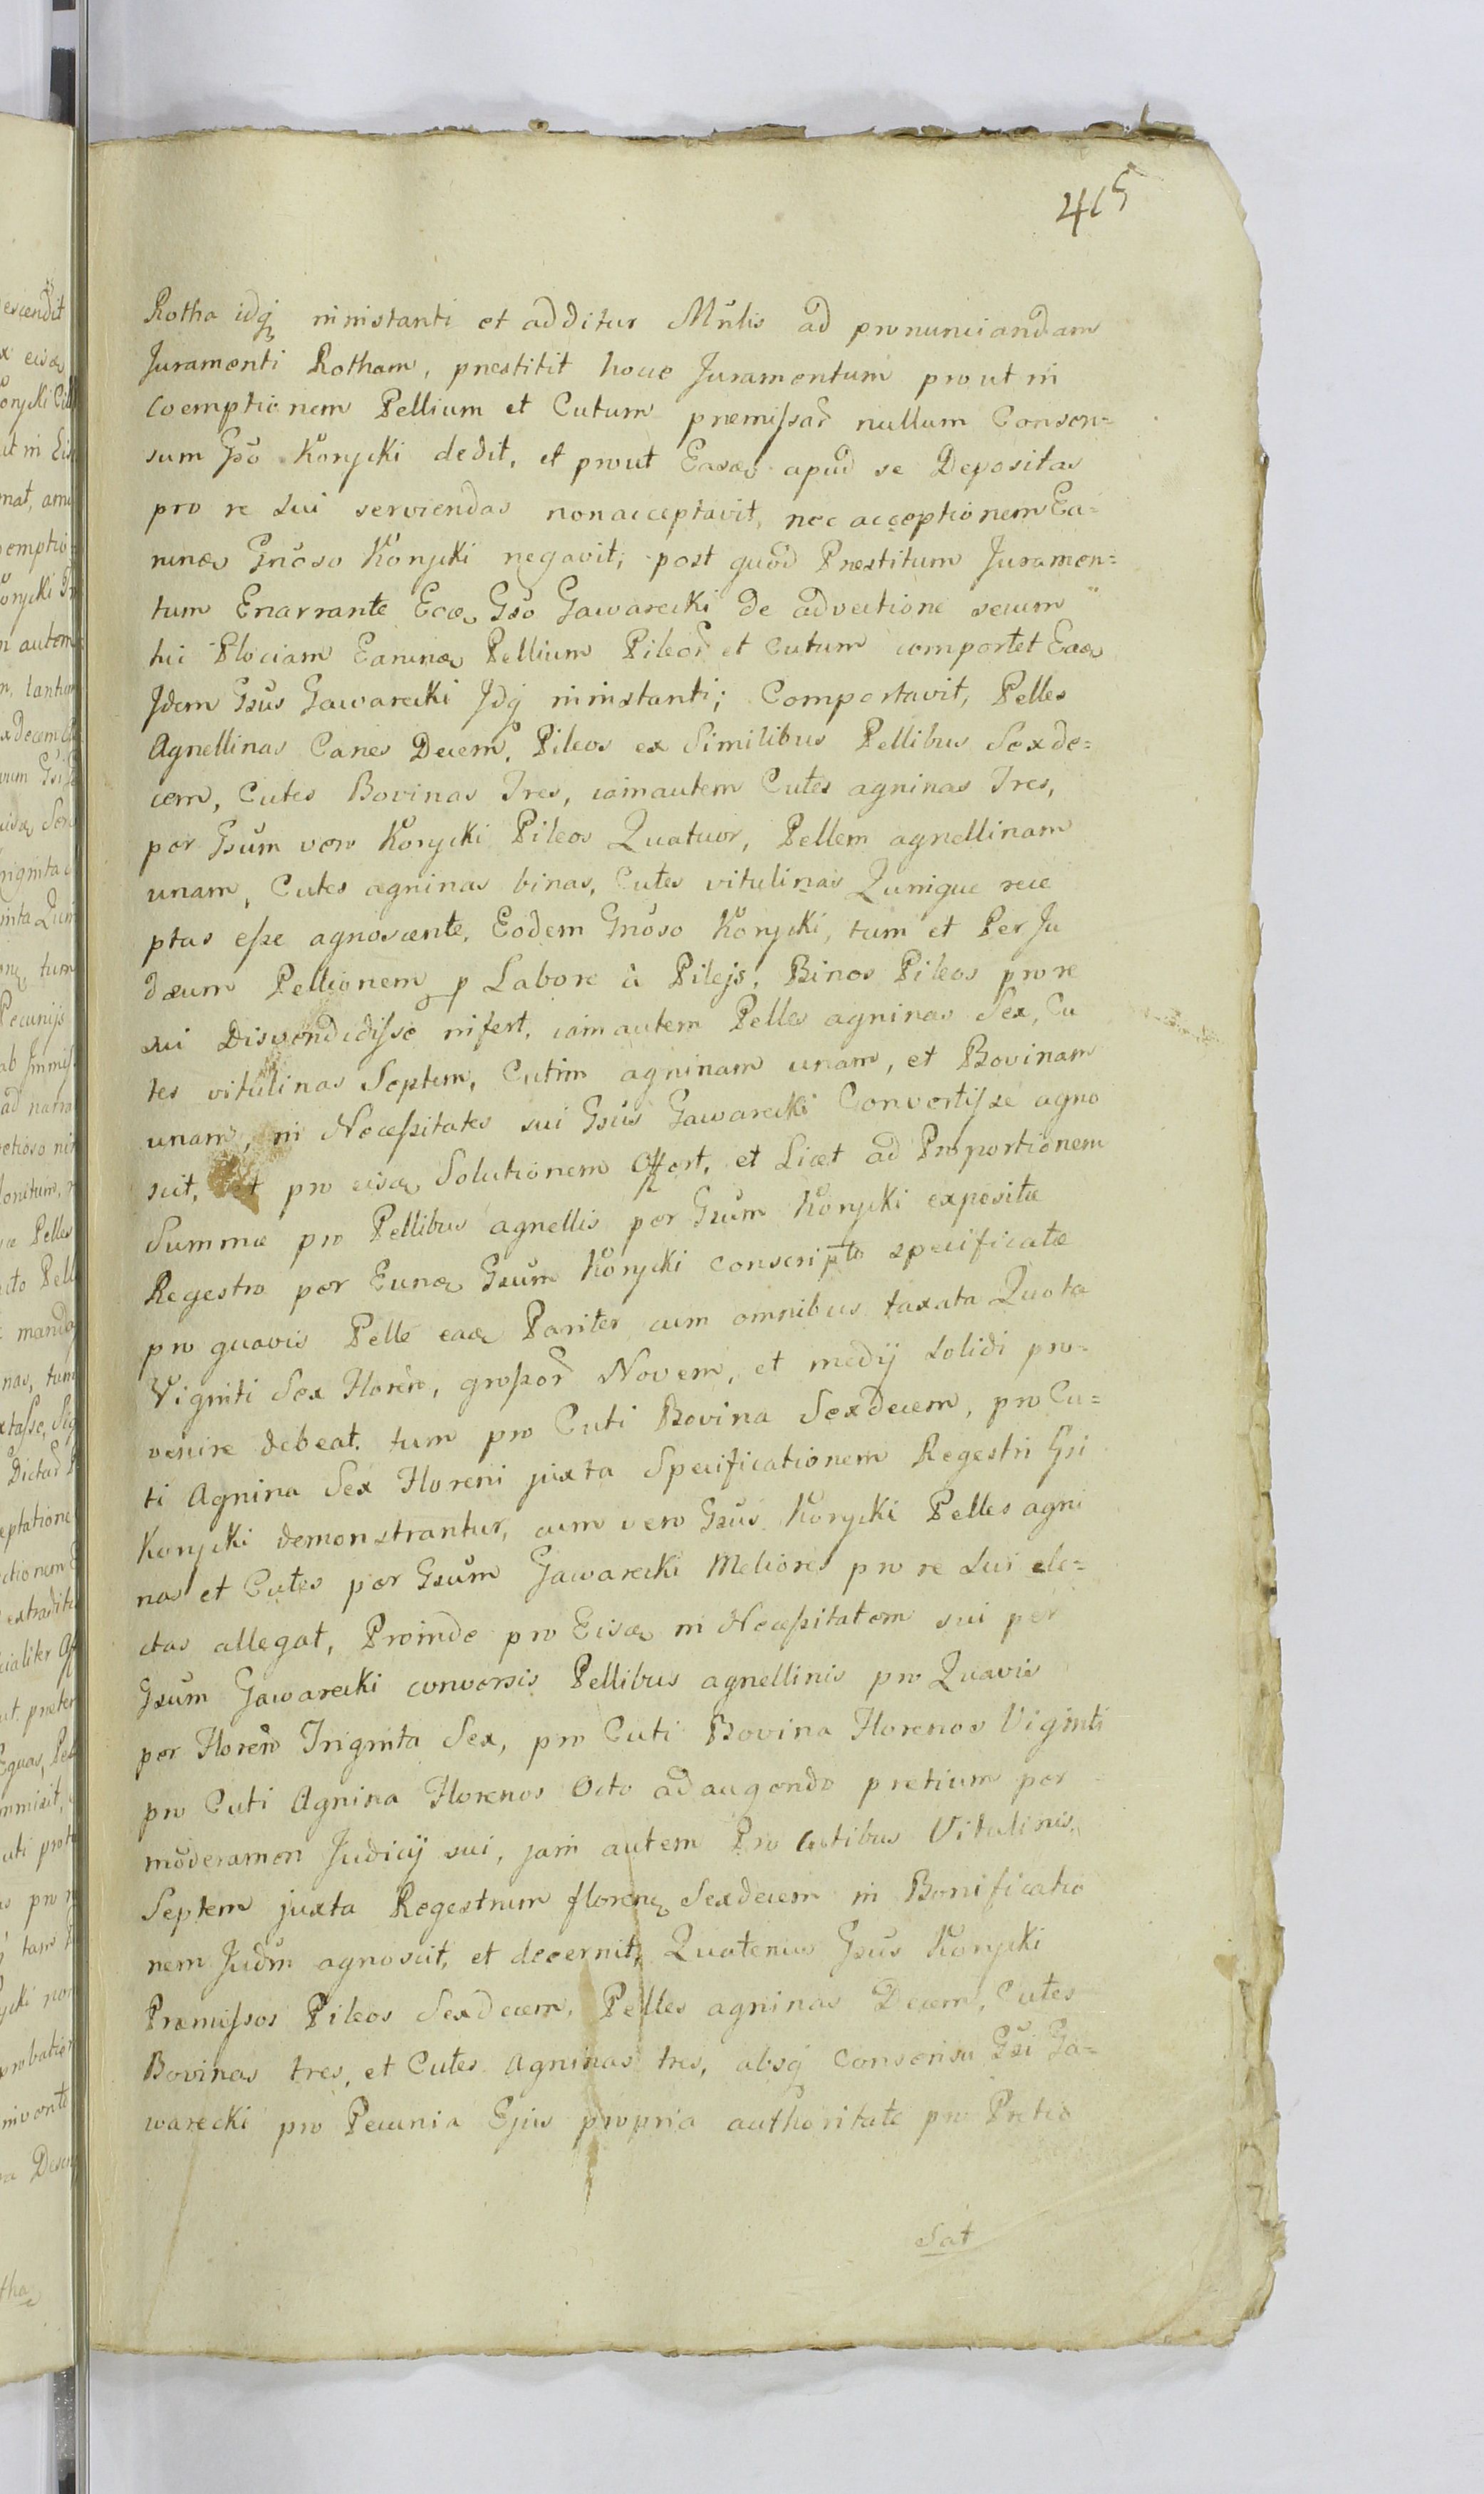 415
Rotha idq̃ in instanti et additur Mnlis ad pronunciandam
Juramenti Rotham, præstitit hocce Juramentum prout in
Coemptionem Pellium et Cutum præmiſsar̃ nullum Consen=
sum Gso Konycki dedit, et prout Easdē apud se Depositas
pro re sui serviendas non acceptavit, nec acceptionem Ea=
rundē Gnoso Konycki negavit; post quod Præstitum Juramen=
tum Enarrante Eodē Gso Gawarecki de advectione secum
huc Plociam Earundē Pellium Pileor̃ et Cutum comportet Easdē
Idem Gsus Gawarecki Idq̃ in instanti; Comportavit, Pelles
Agnellinas Canes Decem, Pileos ex Similibus Pellibus Sexde=
cem, Cutes Bovinas Tres, iam autem Cutes agninas Tres,
per Gsum vero Konycki Pileos Quatuor, Pellem agnellinam
unam, Cutes agninas binas, Cutes vitulinas Quinque rece
ptas eſse agnoscente, Eodem Gnoso Konycki, tum et Per Ju
dæum Pellionem p Labore à Pilejs, Binos Pileos pro re
sui Disvendidiſse infert, iam autem Pelles agninas Sex, Cu
tes vitulinas Septem, Cutim agninam unam, et Bovinam
unam, in Neceſsitates sui Gsus Gawarecki Convertiſse agno
scit, et pro eisdē Solutionem Offert, et Licet ad Proportionem
Summæ pro Pellibus agnellis per Gsum Konycki expositæ
Regestro per Eundē Gsum Konycki conscripto specificatæ
pro quavis Pelle eadē Pariter cum omnibus taxata Quota
Viginti Sex Floren̄, groſsor̃ Novem, et medij solidi pro=
venire debeat, tum pro Cuti Bovina Sexdecem, pro Cu=
ti Agnina Sex Floreni juxta Specificationem Regestri Gsi
Konycki demonstrantur, cum vero Gsus Konycki Pelles agni
nas et Cutes per Gsum Gawarecki Meliores pro re sui ele=
ctas allegat, Proinde pro Eisdē in Neceſsitatem sui per
Gsum Gawarecki conversis Pellibus agnellinis pro Quavis
per Floren̄ Triginta Sex, pro Cuti Bovina Florenos Viginti
pro Cuti Agnina Florenos Octo adaugendo pretium per
moderamen Judicij sui, jam autem Pro Cutibus Vitulinis
Septem juxta Regestrum floren̄ Sexdecem in Bonificatio
nem Judm agnoscit, et decernit, Quatenus Gsus Konycki
Præmiſsos Pileos Sexdecem, Pelles agninas Decem, Cutes
Bovinas tres, et Cutes Agninas tres, absq̃ Consensu Gsi Ga=
warecki pro Pecunia Ejus propria authoritate pro Pretio
Sat